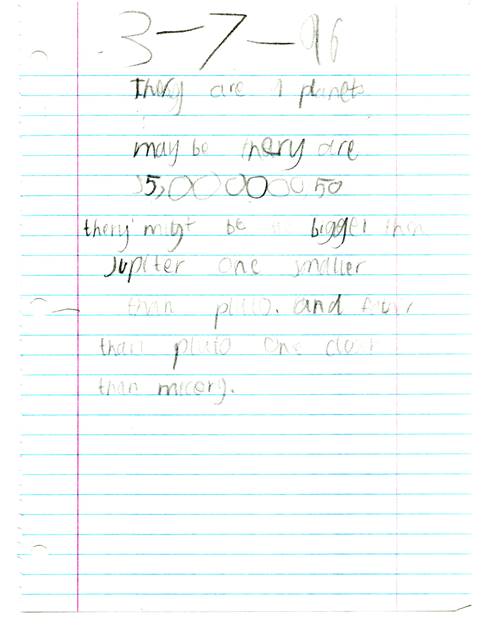 3-7-96
Thery are 9 planets
may be thery are
55,000000.50
thery might be a bigger then
Jupiter one smaller
than pluto. and
than pluto one
than mercery.